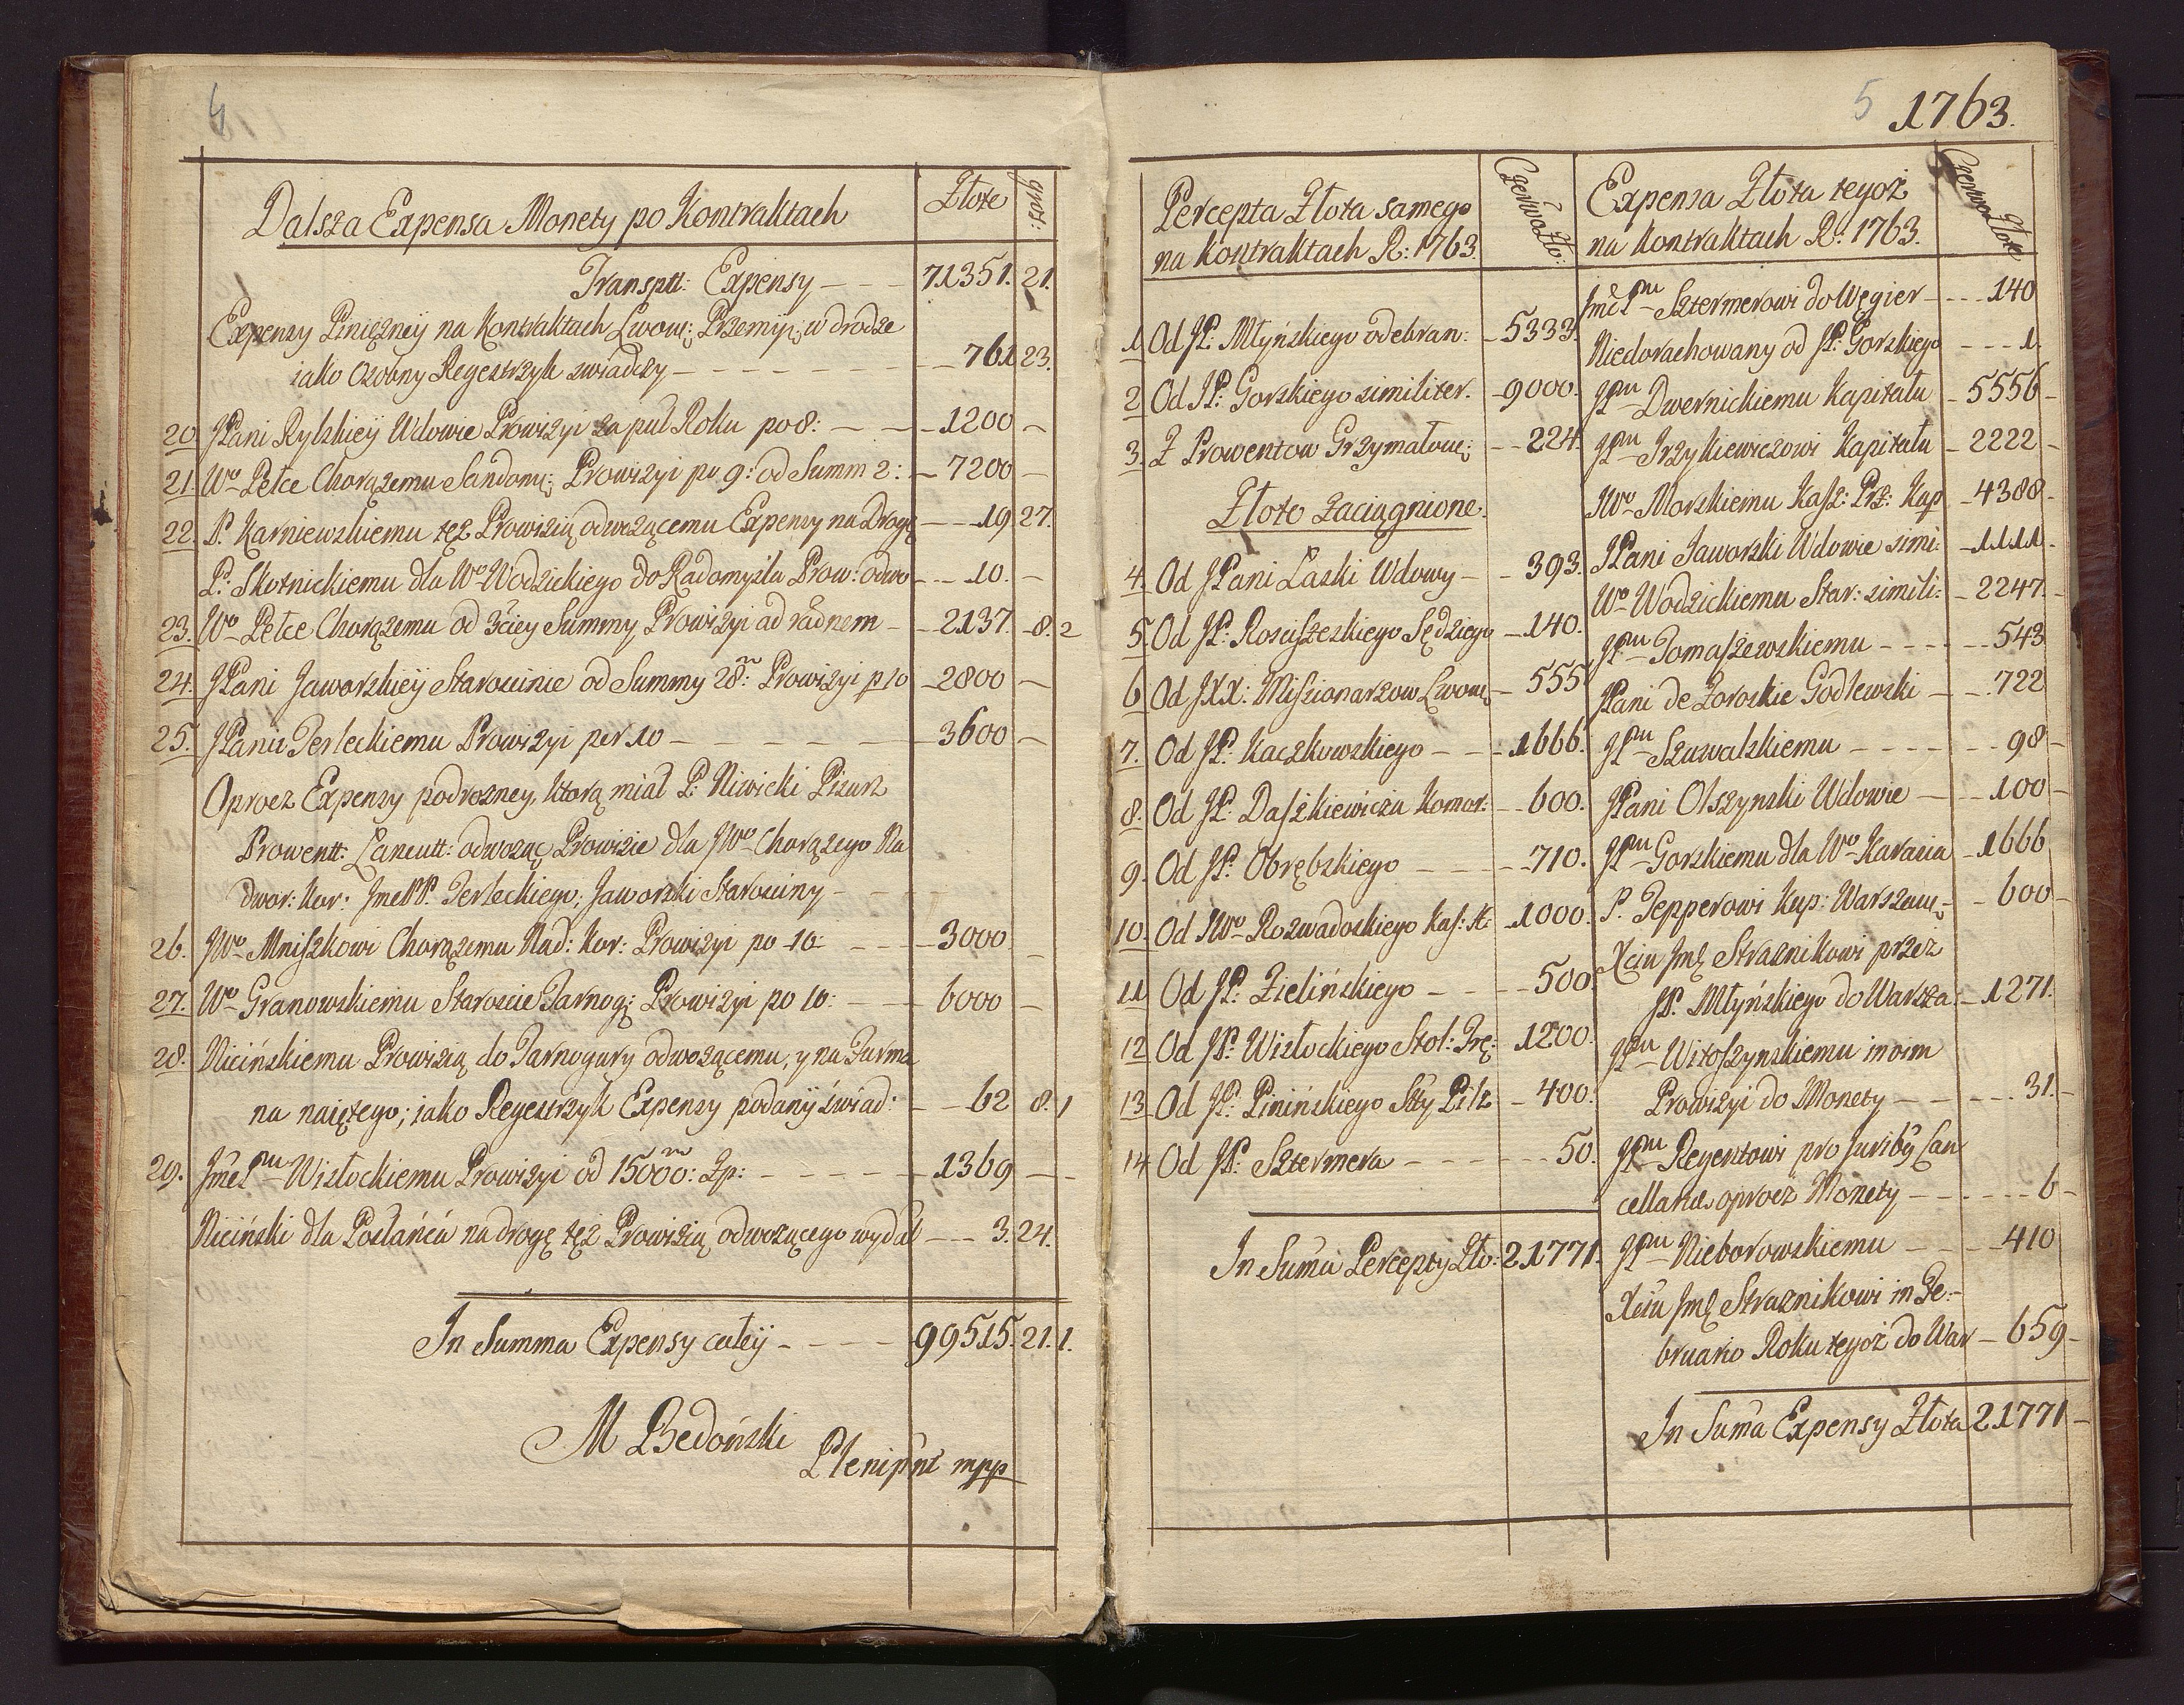 4
Dalsza Expensa Monety po Kontraktach Złote gros:
Transptt: Expensy - - - 71351. 21.
Expensy Pieniężney na Kontraktach Lwow: Przemys: w drodze
iako Osobny Regestrzyk swiadczy - - - 761 23.
20. JPani Rylskiey Wdowie Prowizyi za puł Roku po 8: - - 1200 -
21. Wo Pełce Chorążemu Sandom: Prowizyi po 9: od Summ 2: - 7200 -
22. P. Karniewskiemu tęż Prowizią odwożącemu Expensy na Drogę - - 19 27.
P. Skotnickiemu dla Wo Wodzickiego do Radomyśla Prow: odwo - - 10. -
23. Wo Pełce Chorążemu od 3ciey Summy Prowizyi ad radnem - - 2137. 8. 2
24. JPani Jaworskiey Starościnie od Summy 28m: Prowizyi p 10 - 2800 -
25. JPanu Terleckiemu Prowizyi per 10 - - - - 3600 -
Oprocz Expensy podrozney, ktorą miał P: Niwicki Pisarz
Prowentt: Łancutt: odwożąc Prowizie dla JWo Chorążego Na
dwor: Kor: JmcPP. Terleckiego, Jaworski Starosciny - - -
26. JWo Mniszkowi Chorążemu Nad: Kor: Prowizyi po 10 - - - 3000 -
27. Wo Granowskiemu Staroscie Tarnog: Prowizyi po 10: - - 6000 -
28. Nicińskiemu Prowizią do Tarnogury odwożącemu, y na Furma
na naiętego; iako Regestrzyk Expensy podany świad: - - 62 8. 1
29. JmcPnu Wisłockiemu Prowizyi od 15000m: Zp: - - - - 1369 - -
Niciński dla Posłańca na drogę tęż Prowizią odwożącego wydał - - 3. 24.
In Summa Expensy całey - - - - 99515. 21. 1.
M Bedoński
Plenipnt mpp
5 1763.
Percepta Złota samego Czerwo Zło:
na Kontraktach R: 1763.
1. Od JP: Młyńskiego odebran: - 5333.
2. Od JP: Gorskiego similiter. - 9000.
3. Z Prowentow Grzymałow: - - 224.
Złoto zaciągnione.
4. Od JPani Laski Wdowy - - 393.
5. Od JP: Rosciszeskiego Sędziego - 140.
6. Od JXX: Missionarzow Lwow: - 555.
7. Od JP: Kaczkowskiego - - - 1666.
8. Od JP: Daszkiewicza Komor: - 600.
9. Od JP: Obrębskiego - - - - 710.
10. Od JWo Rozwadoskiego Kas: H: 1000.
11. Od JP: Zielińskiego - - - - 500.
12. Od JP: Wisłockiego Stol: Trę: 1200.
13. Od JP: Pinińskiego Sty Pilz - 400.
14. Od JP: Sztermera - - - - - 50.
In Suma Percepty Zło: 21771.
Expensa Złota tegoż Czerwo Złote
na Kontraktach R: 1763.
JmcPnu Sztermerowi do Węgier - - - 140
Niedorachowany od JP: Gorskiego - - - 1.
JPnu Dwernickiemu Kapitału - 5556 -
JPnu Jrzykiewiczowi Kapitału - 2222 -
JWo Morskiemu Kasz: Prz: Kap - 4388 -
JPani Jaworski Wdowie simi: - 1111 -
Wo Wodzickiemu Star: simili: - 2247. -
JPnu Tomaszewskiemu - - - - - 543
JPani de Zoroskie Godlewski - - 722
JPnu Szuwalskiemu - - - - - 98 -
JPani Olszynski Wdowie - - - 100 -
JPnu Gorskiemu dla Wo Karasia - 1666
P. Tepperowi Kup: Warszaw: - 600 -
Xciu Jmć Straznikowi przez
JP. Młyńskiego do Warsza: - 1271.
JPnu Witoszynskiemu in vim
Prowizyi do Monety - - - - - 31. -
JPnu Regentowi pro Juribg Can
cellariae oprocz Monety - - - - - 6 -
JPnu Nieborowskiemu - - - - 410
Xciu Jmć Straznikowi in Fe:-
bruario Roku tegoż do War - 659 -
In Suma Expensy Złota 21771 -